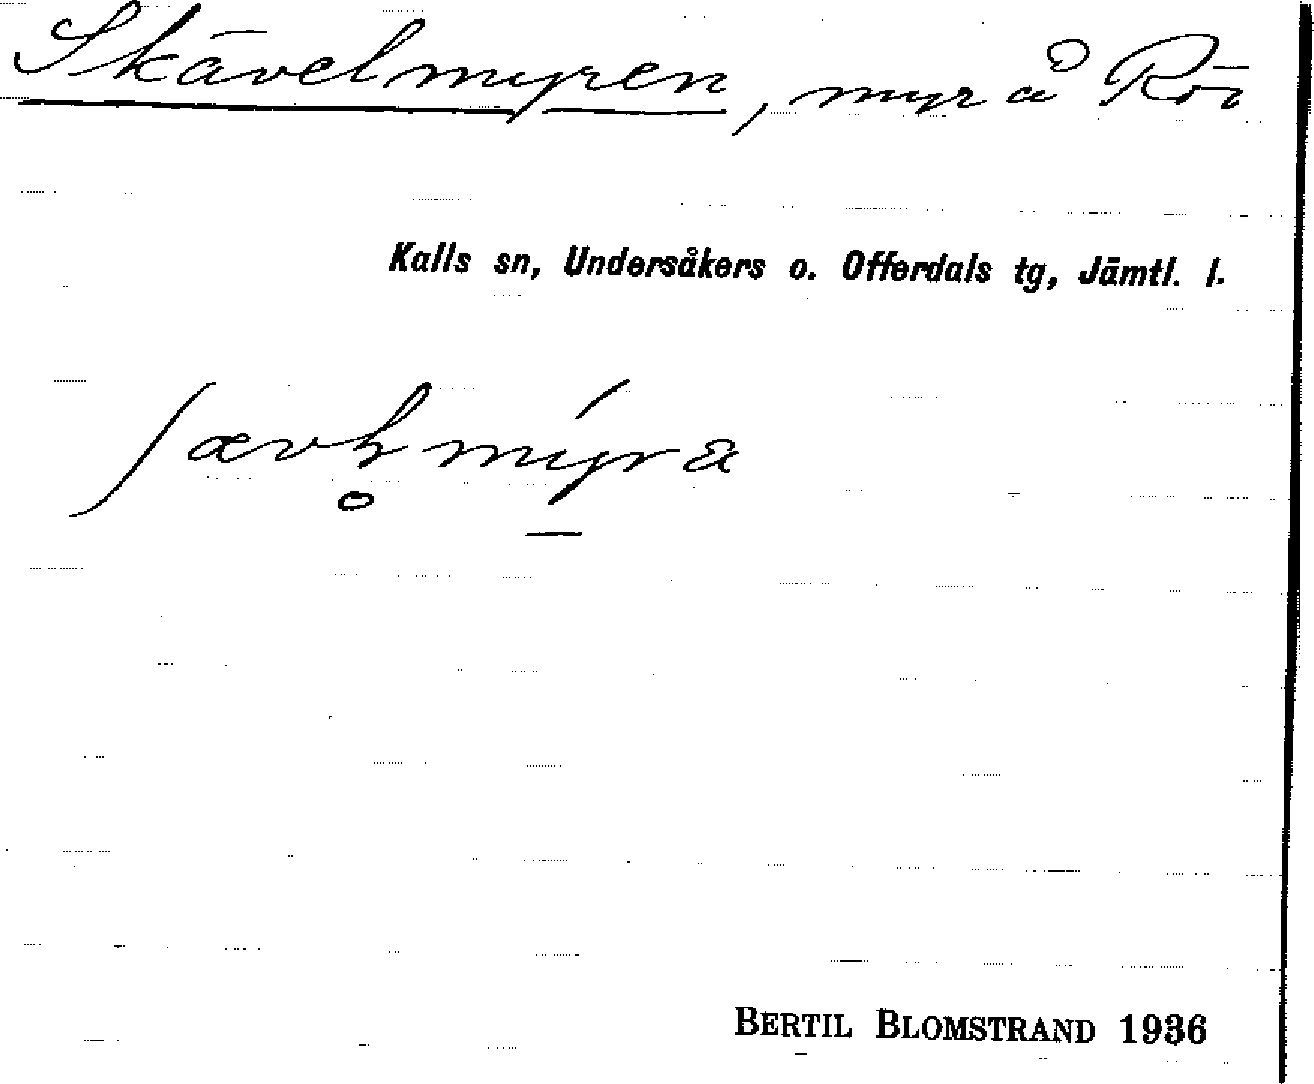 Skävelmyren, myr å Röi
Kalls sn, Undersåkers o. Offerdals tg, Jämtl. l.
BERTIL BLOMSTRAND 1936